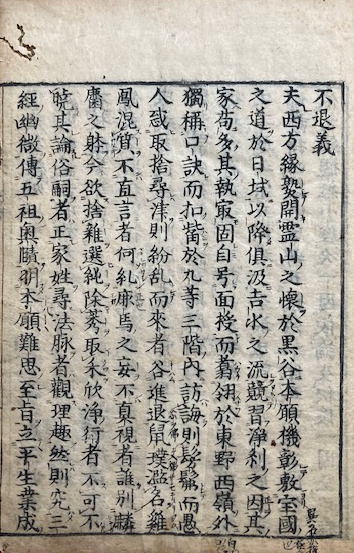 不退義
夫西方緣熟開霊山之懷於黒谷本願機彰敷室國
之道於日域以降俱汲吉水之流競習淨刹之因其
家苟多其執冣固自号面授而翥翎於東野西嶺外
獨稱口訣而扣觜於九等三階内訪誨則髣髴而愚
人惑取捨尋津則紛乱而來者谷進退鼠璞濫名雞
鳳混質不直言者何糺焉之妄不真視者誰別麟
麕之躰今欲捨雜選純除莠取禾欣淨行者不可不
暁其論俗嗣者正家姓尋法脉者觀理趣然則究三
經幽微傳五祖奥賾明本願難思至旨立平生業成